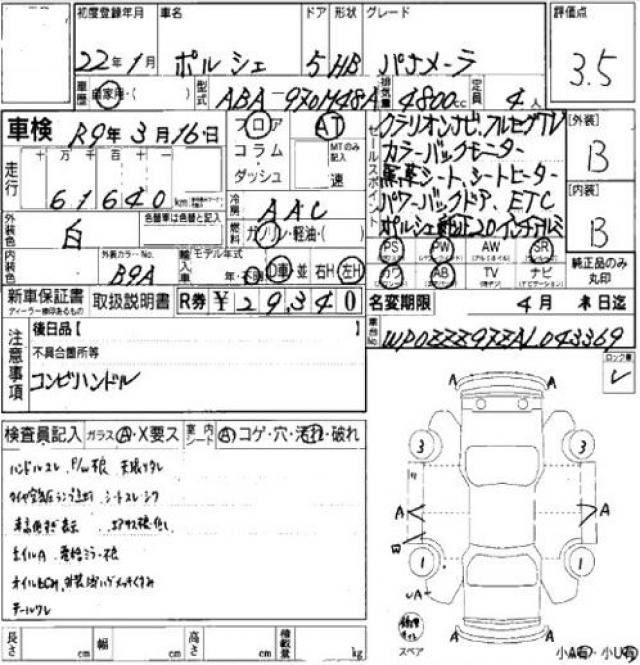 初度登録年月 車名 ドア 形状 グレード 評価点
22年1月 ポルシェ 5 HB パナメーラ 3.5
車歴 自家用・( ) 型式 ABA-970M48A 排気量 4800cc 定員 4人
車検 R9年3月16日 フロア AT
コラム・ MTのみ記入
ダッシュ 速
セールスポイント
クラリオンナビ、フルセグTV
カラーバックモニター
黒革シート、シートヒーター
パワーバックドア、ETC
ポルシェ純正20インチアルミ
[外装] B
[内装] B
走行 十万千百十一
61640km
冷房 AAC
燃料 ガソリン・軽油・( )
外装色 白 色替車は色替と記入
内装色 外装カラーNo. B9A
輸入車 モデル年式 年・不明 D車・並 右H・左H
PS PW AW SR
カワ AB TV ナビ
純正品のみ丸印
新車保証書 取扱説明書 R券 ¥29,340
ディーラー捺印あるもの
名変期限 4月末日迄
車台No. WP0ZZZ97ZAL043369
注意事項
後日品【 】
不具合箇所等
コンビハンドル
ロック車 レ
検査員記入 ガラス A・X要ス 室内シート A コゲ・穴・汚れ・破れ
ハンドルスレ
シートスレ・シワ
ホイルA
テールワレ
3 3
A A A
1 1
A
A A
スペア
小A有・小U有
長さ cm 幅 cm 高さ cm 積載量 kg